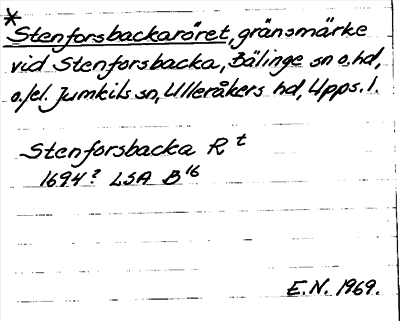 *
Stenforsbackaröret, gränsmärke
vid Stenforsbacka, Bälinge sn o. hd,
o./el. Jumkils sn, Ulleråkers hd, Upps. l.
Stenforsbacka R t
1694? LSA B 16
E.N. 1969.